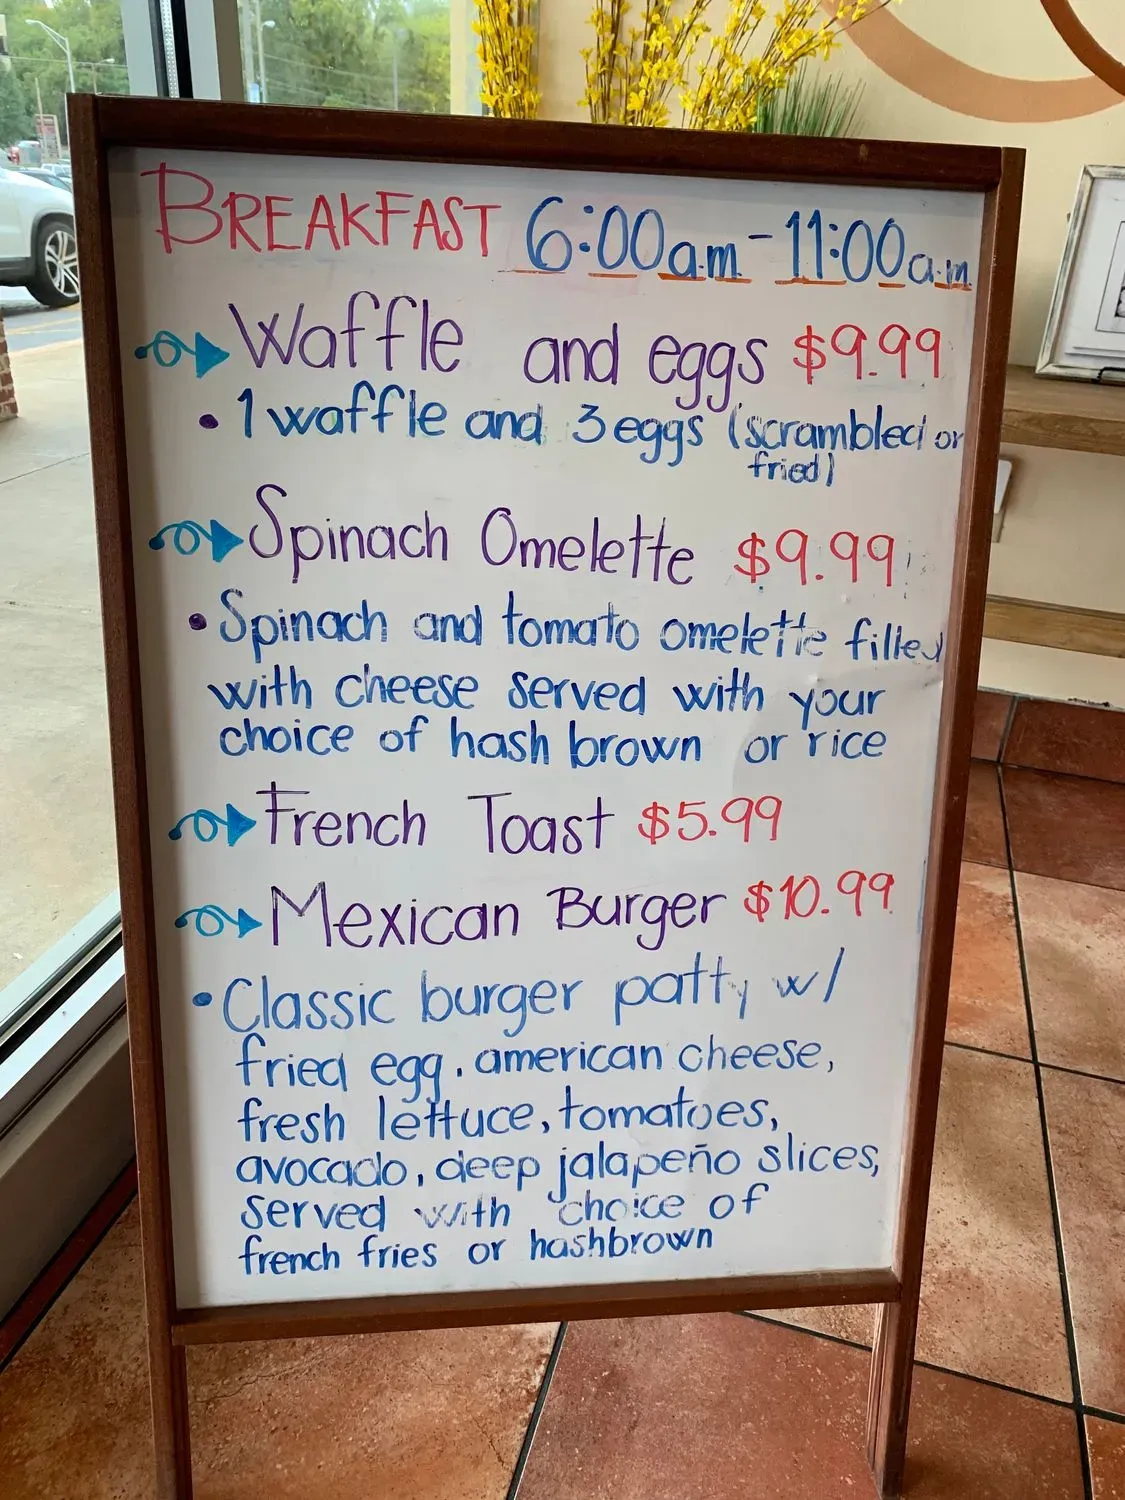 BREAKFAST 6:00a.m. - 11:00a.m
Waffle and eggs $9.99
• 1 waffle and 3 eggs (scrambled or
fried)
Spinach Omelette $9.99
• Spinach and tomato omelette filled
with cheese served with your
choice of hash brown or rice
French Toast $5.99
Mexican Burger $10.99
• Classic burger patty w/
fried egg, american cheese,
fresh lettuce, tomatoes,
avocado, deep jalapeño slices,
served with choice of
french fries or hashbrown